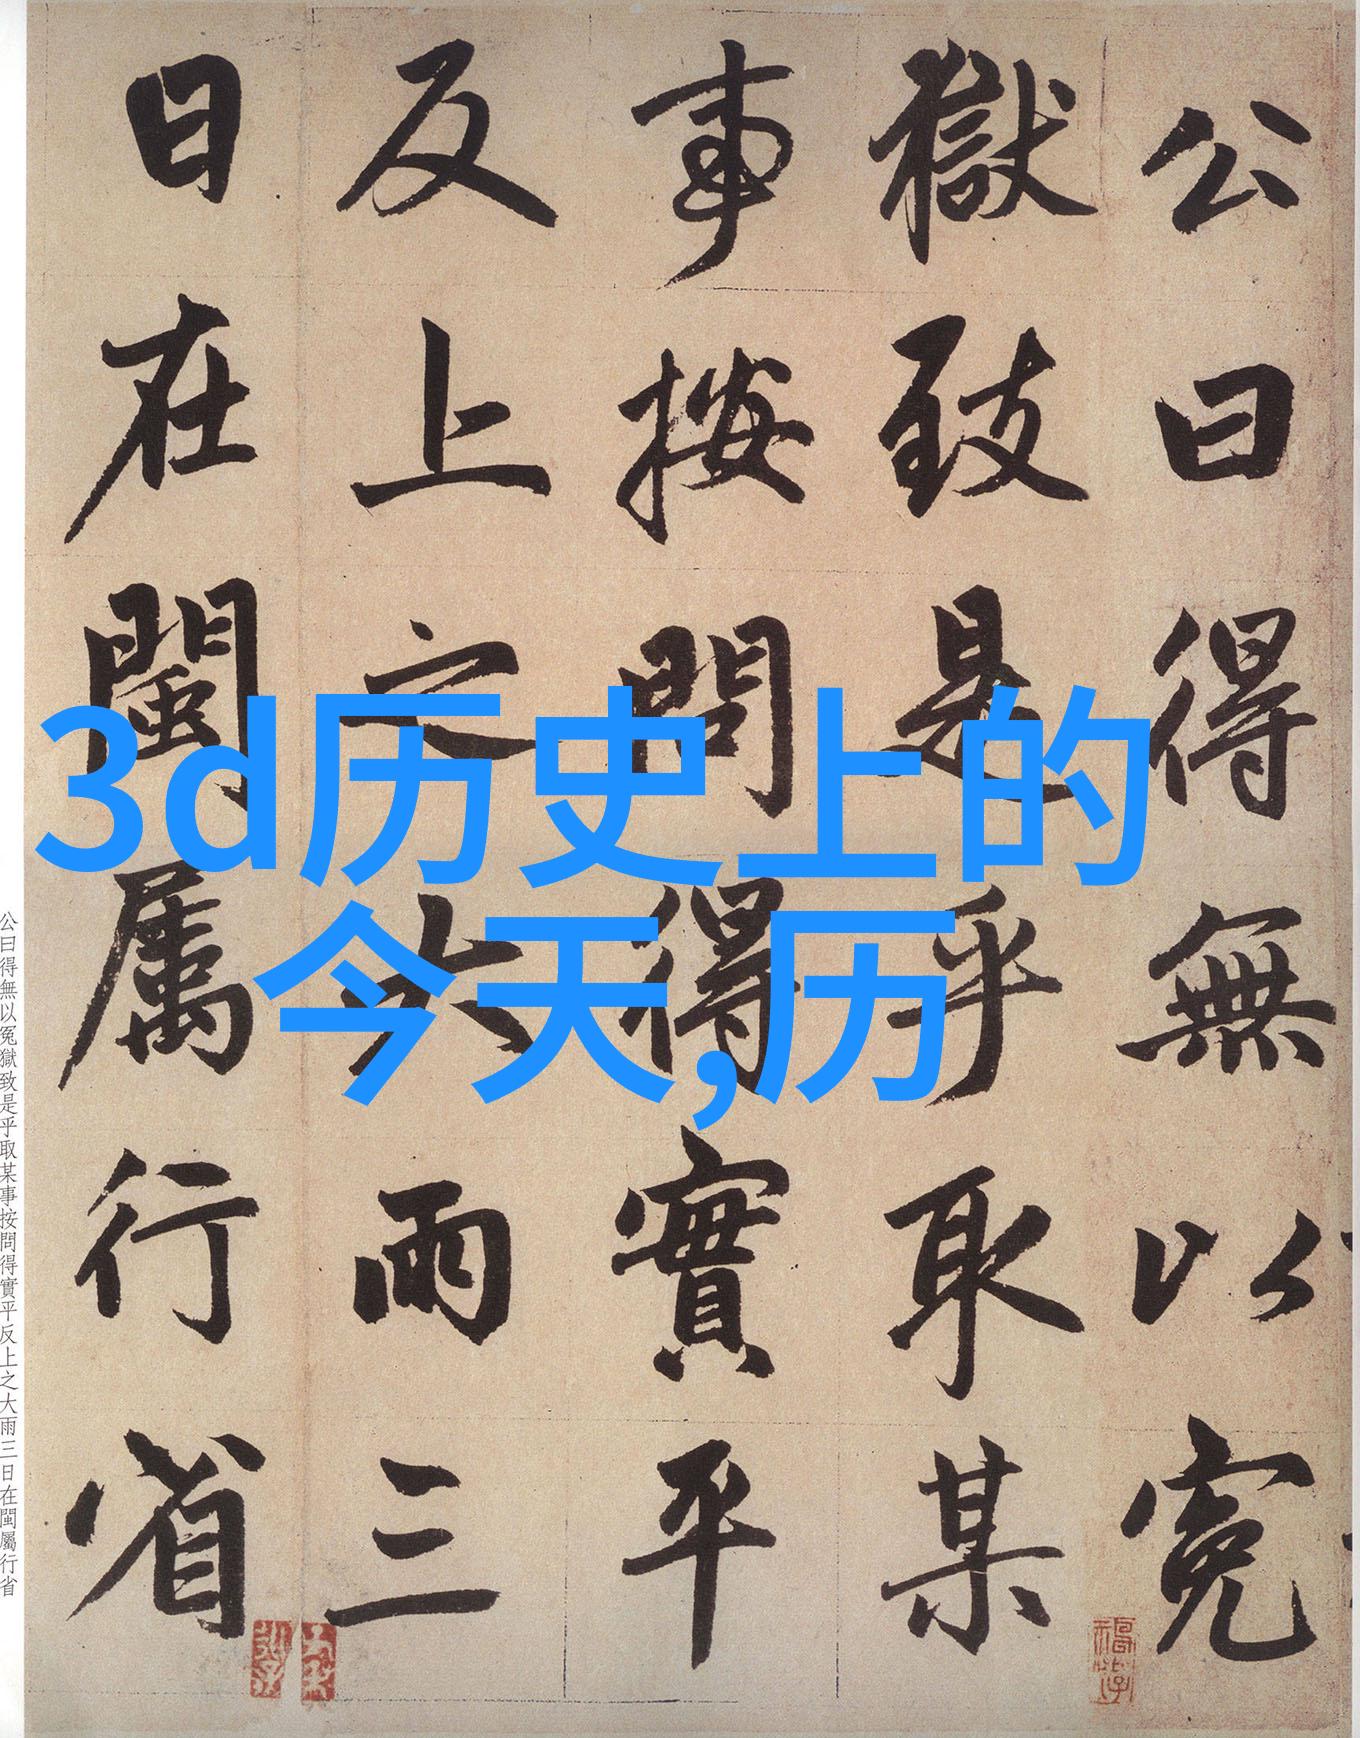 公曰得無以冤
獄致是乎取某
事按問得實平
反上之大雨三
日在閩属行省
3d历史上的
今天,历
公曰得無以冤獄致是乎取某事按問得實平反上之大雨三日在閩屬行省